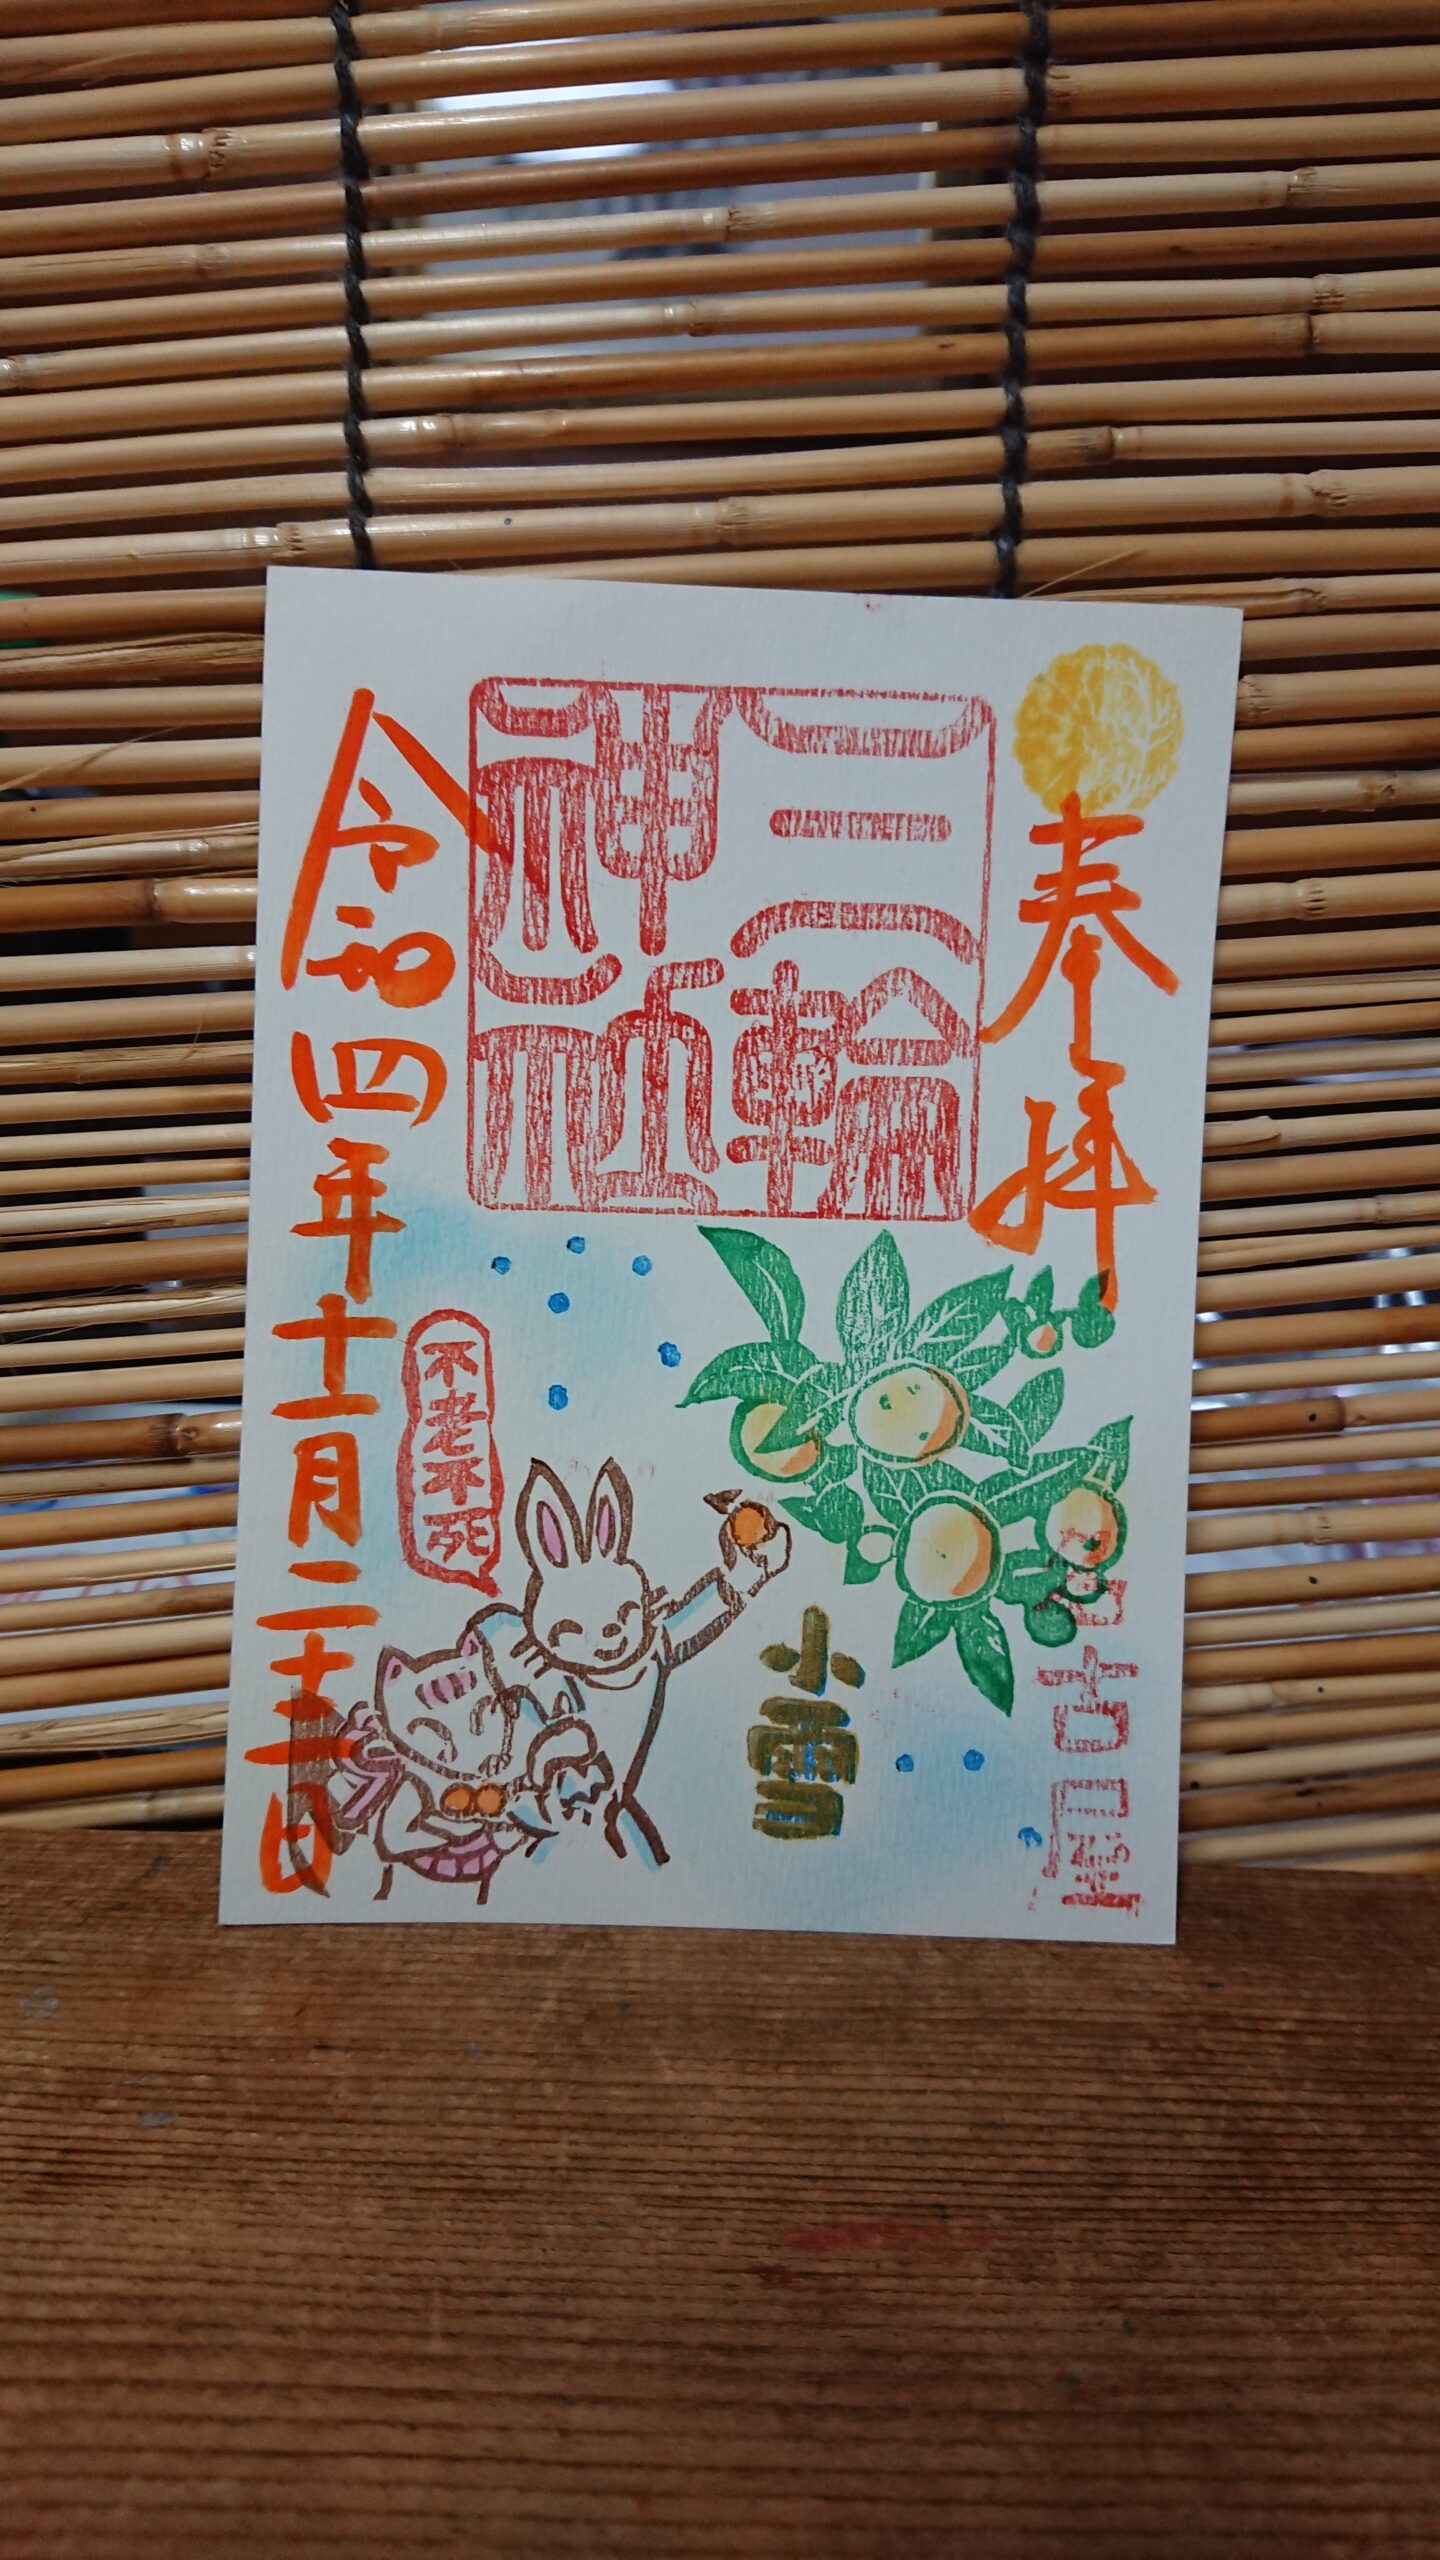 奉拝
三輪
神社
不老不死
小雪
令和四年十一月二十二日